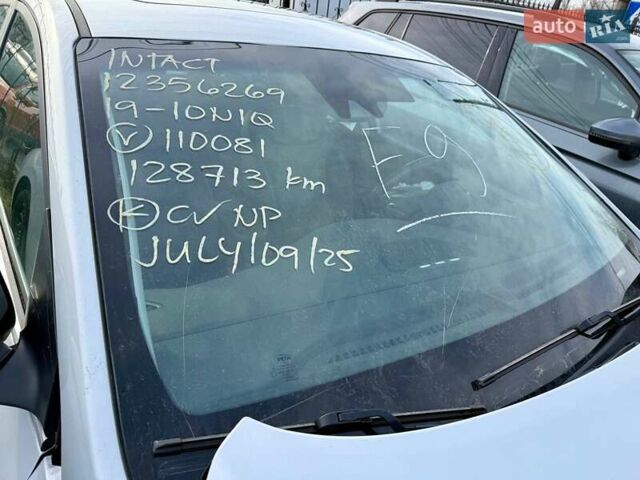 auto RIA
INTACT
12356269
19-IONIQ
Ⓥ 110081
128713 km
Ⓚ CV NP
JULY/09/25
F9